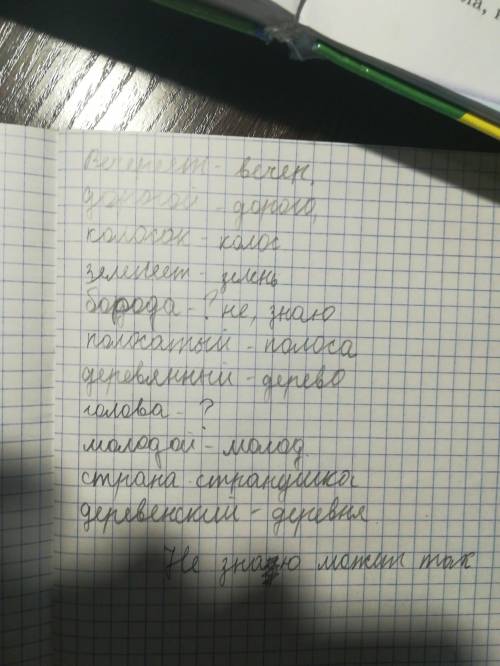 ла,
Вечереет - вечер,
дорогой - дорого,
колосок - колос
зеленеет - зелень
борода - ? не, знаю
полосатый - полоса
деревянный - дерево
голова - ?
молодой - молод.
страна странушка
деревенский - деревня
Не знаю может так